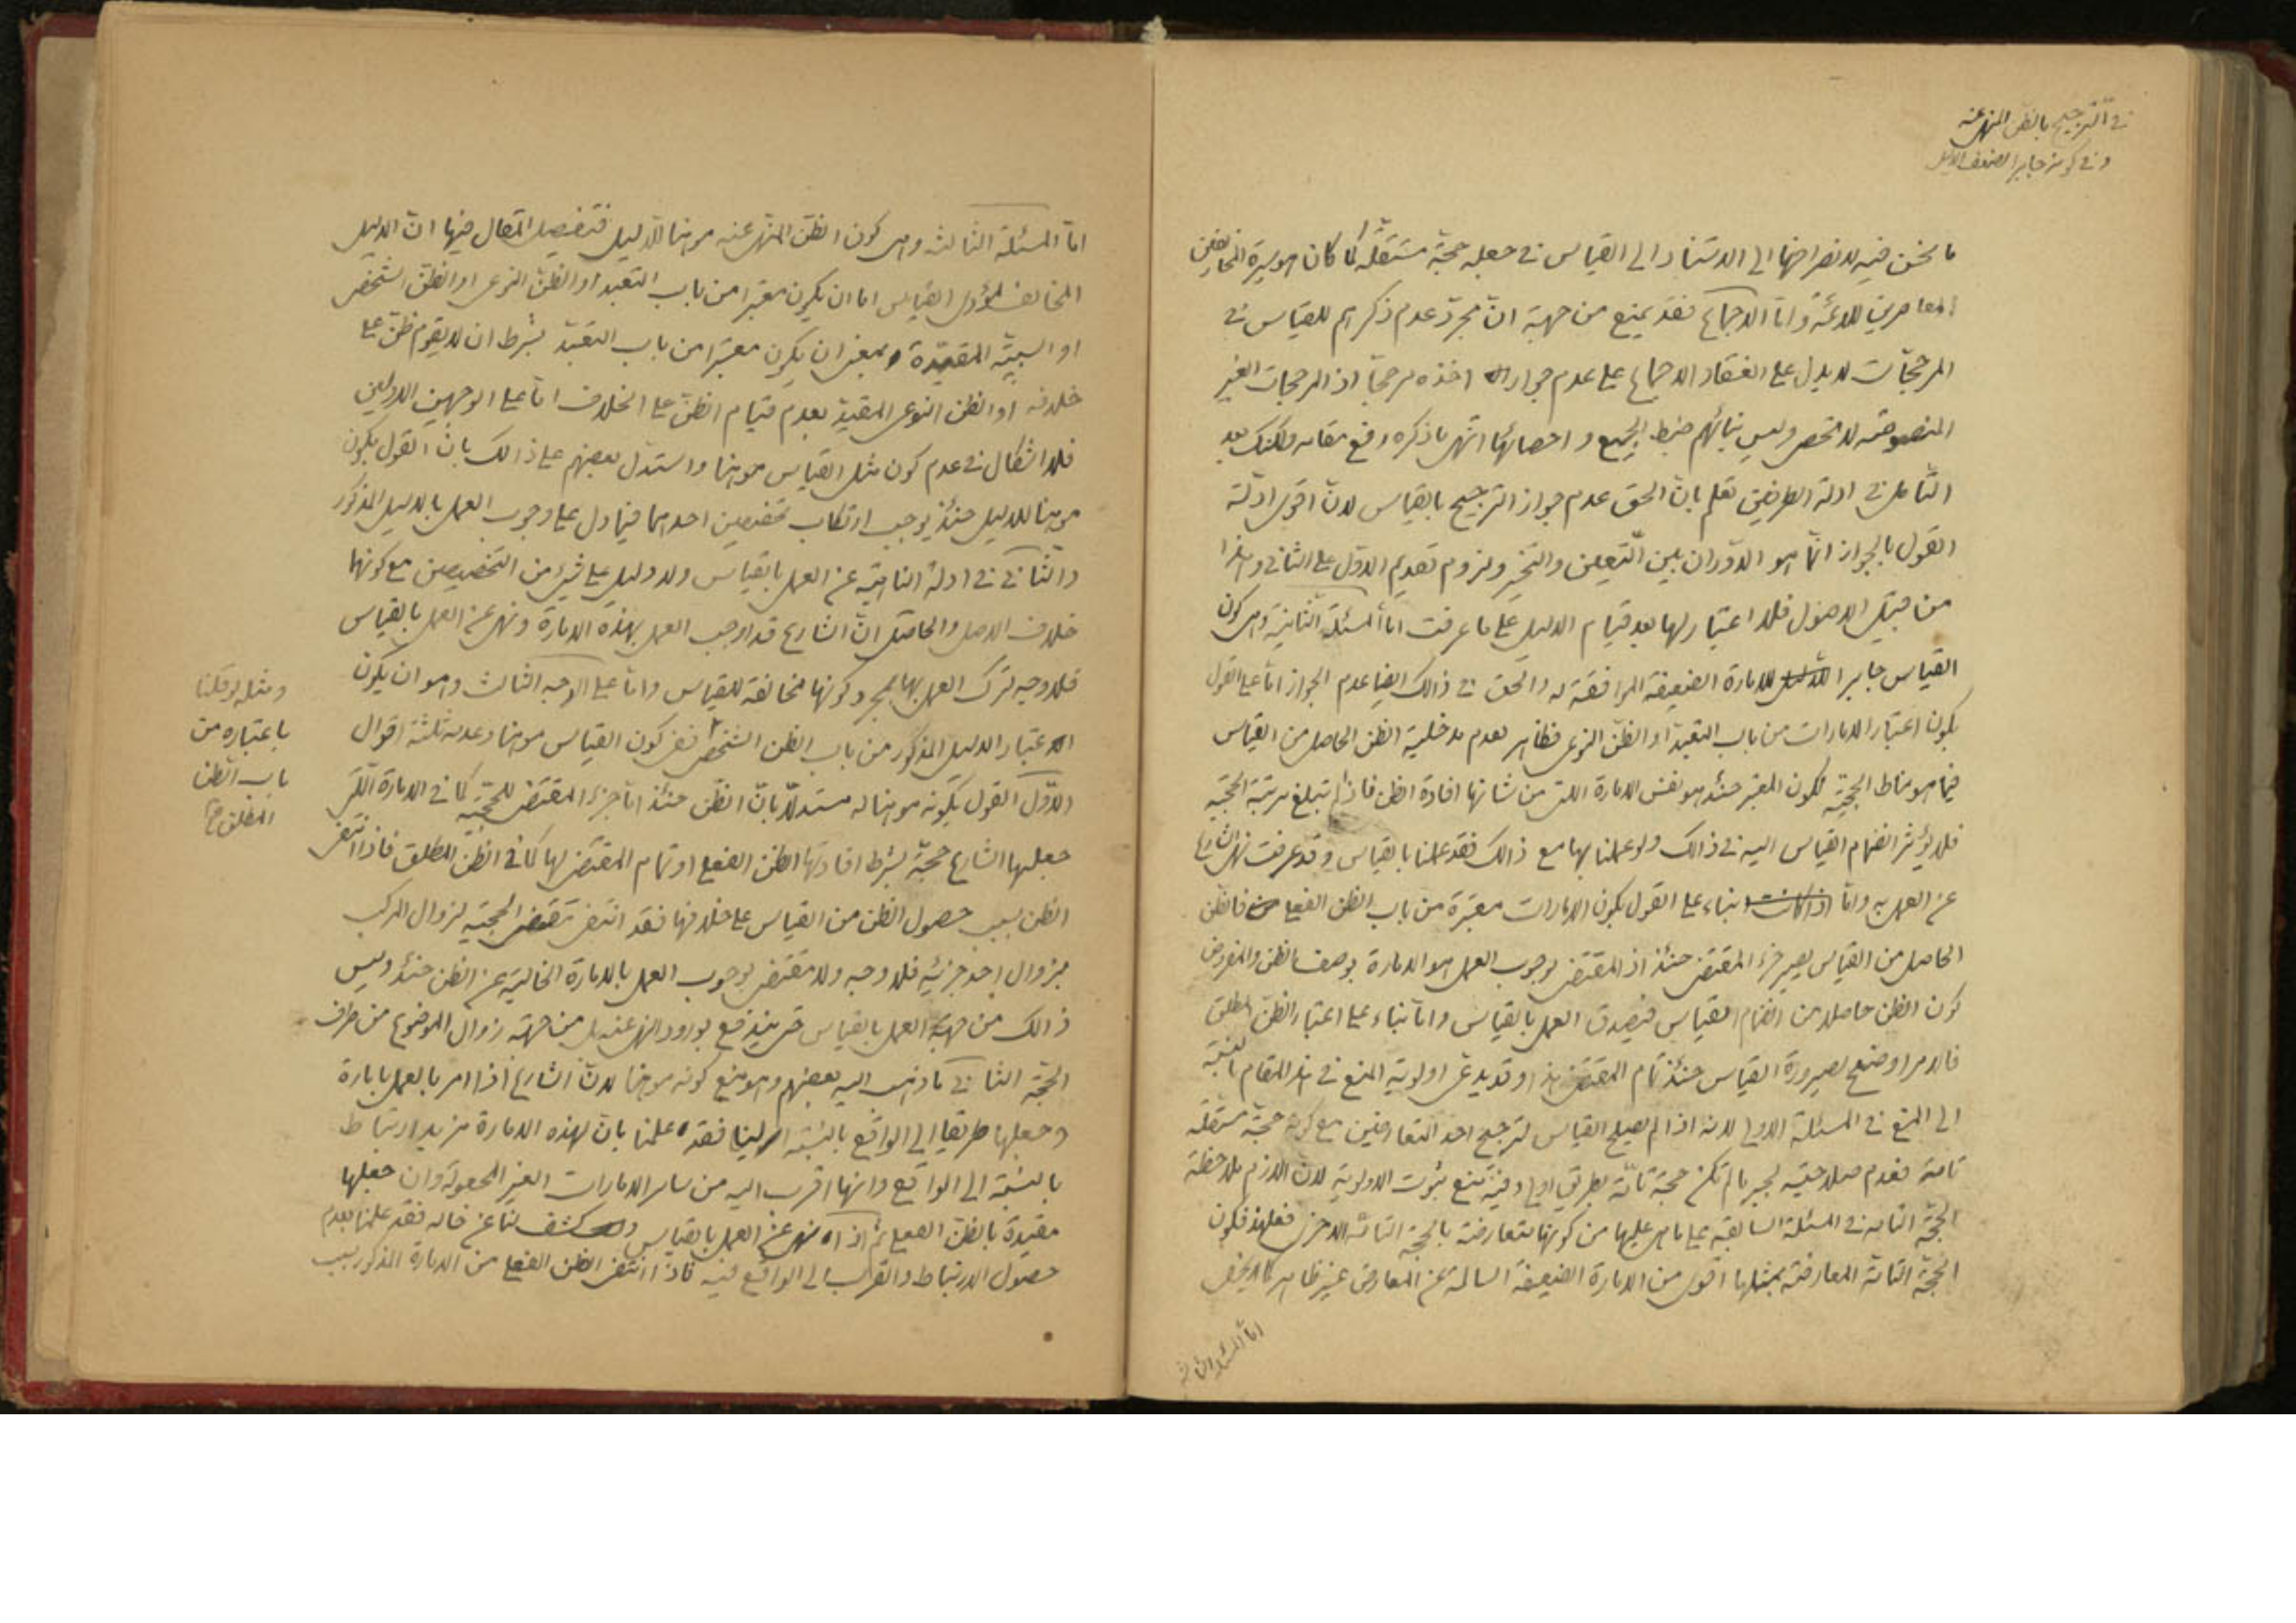 في الترجيح بالظن المنهي عنه
و في كونه جابرا لضعف الدليل
ما نحن فيه لانصرافها الى الاستناد الى القياس في جعله حجة مستقلة كما كان هو سيرة المخالفين
المعاصرين للائمة و اما الاجماع فقد يمنع من جهة ان مجرد عدم ذكرهم للقياس في
المرجحات لا يدل على انعقاد الاجماع على عدم جواز اخذه مرجحا اذ المرجحات الغير
المنصوصة لا تحصى و ليس بنائهم ضبط الجميع و احصائها انتهى ما ذكره رفع مقامه ولكنك بعد
التامل في ادلة الطرفين تعلم بان الحق عدم جواز الترجيح بالقياس لان اقوى ادلة
القول بالجواز انما هو الدوران بين التعيين والتخيير و لزوم تقديم الاول على الثاني و هذا
من قبيل الاصول فلا اعتبار لها بعد قيام الدليل على ما عرفت اما المسئلة الثانية و هى كون
القياس جابرا للامارة الضعيفة الموافقة له و الحق في ذالك ايضا عدم الجواز اما على القول
بكون اعتبار الامارات من باب التعبد او الظن النوعى فظاهر لعدم مدخلية الظن الحاصل من القياس
فيما هو مناط الحجية لكون المعتبر حينئذ هو نفس الامارة التى من شانها افادة الظن فاذا لم تبلغ مرتبة الحجية
فلا يؤثر انضمام القياس اليه في ذالك ولو عملنا بها مع ذالك فقد عملنا بالقياس و قد عرفت نهى الشارع
عن العمل به و اما بناء على القول بكون الامارات معتبرة من باب الظن الفعلى فالظن
الحاصل من القياس يصير جزء المقتضى حينئذ اذ المقتضى لوجوب العمل هو الامارة بوصف الظن والمفروض
كون الظن حاصلا من انضمام القياس فيصدق العمل بالقياس و اما بناء على اعتبار الظن المطلق
فالامر اوضح لصيرورة القياس حينئذ تمام المقتضى هذا و قد يدعى اولوية المنع في هذا المقام بالنسبة
الى المنع في المسئلة الاولى لانه اذا لم يصلح القياس لترجيح احد المتعارضين مع كونه حجة مستقلة
تامة فعدم صلاحيته لجبر ما لم تكن حجة تامة بطريق اولى و فيه منع ثبوت الاولوية لان اللازم ملاحظة
الحجة التامة في المسئلة السابقة على ما هى عليها من كونها متعارضة بالحجة التامة الاخرى فعلى هذا فكون
الحجة التامة المعارضة بمثلها اقوى من الامارة الضعيفة السالمة عن المعارض غير ظاهر كما لا يخفى
اما المسئلة الثالثة
اما المسئلة الثالثة و هى كون الظن المنهى عنه موهنا للدليل فتفصيل المقال فيها ان الدليل
المخالف لمؤدى القياس اما ان يكون معتبرا من باب التعبد او الظن النوعى او الظن الشخصى
او السببية المقيدة بمعنى ان يكون معتبرا من باب التعبد بشرط ان لا يقوم ظن على
خلافه او الظن النوعى المقيد بعدم قيام الظن على الخلاف اما على الوجهين الاولين
فلا اشكال في عدم كون مثل القياس موهنا و استدل بعضهم على ذالك بان القول بكون
موهنا للدليل حينئذ يوجب ارتكاب تخصيصين احدهما فيما دل على وجوب العمل بالدليل المذكور
و الثاني في ادلة الناهية عن العمل بالقياس ولا دليل على شئ من التخصيصين مع كونهما
خلاف الاصل والحاصل ان الشارع قد اوجب العمل بهذه الامارة و نهى عن العمل بالقياس
فلا وجه لترك العمل بها بمجرد كونها مخالفة للقياس و اما على الوجه الثالث و هو ان يكون
اعتبار الدليل المذكور من باب الظن الشخصى ففى كون القياس موهنا و عدمه ثلثة اقوال
الاول القول بكونه موهنا له مستدلا بان الظن حينئذ اما جزء المقتضى للحجية كما في الامارة التى
جعلها الشارع حجة بشرط افادتها الظن الفعلى او تمام المقتضى لها كما في الظن المطلق فاذا انتفى
الظن بسبب حصول الظن من القياس على خلافها فقد انتفى مقتضى الحجية لزوال المركب
بزوال احد جزئيه فلا وجه ولا مقتضى لوجوب العمل بالامارة الخالية عن الظن حينئذ و ليس
ذالك من جهة العمل بالقياس حتى يندفع بورود النهى عنه بل من جهة زوال الموضوع من طرف
الحجة الثاني ما ذهب اليه بعضهم و هو منع كونه موهنا لان الشارع اذا امر بالعمل بامارة
و جعلها طريقا الى الواقع بالنسبة الينا فقد علمنا بان لهذه الامارة مزيد ارتباط
بالنسبة الى الواقع و انها اقرب اليه من ساير الامارات الغير المجعولة و ان جعلها
مقيدة بالظن الفعلى ثم اذا نهى عن العمل بالقياس و كشف لنا عن حاله فقد علمنا بعدم
حصول الارتباط والقرب الى الواقع فيه فاذا انتفى الظن الفعلى من الامارة المذكورة بسبب
و مثله لو قلنا
باعتباره من
باب الظن
المطلق